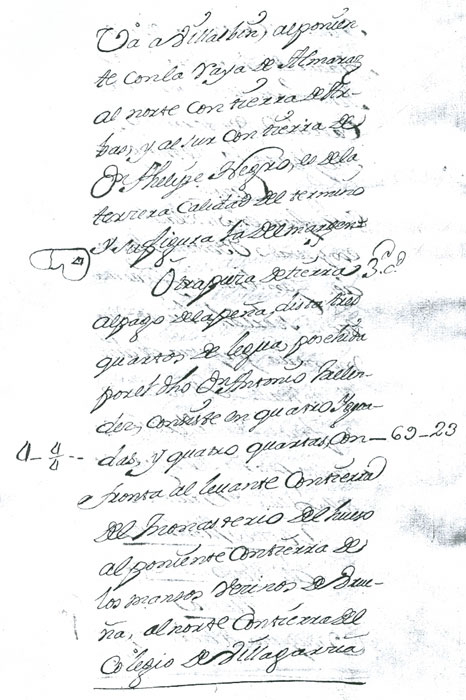 Va a Villalbin, al ponien-
te con la Raya de Almaraz
al norte con tierra de Ar-
bas, y al sur con tierra de
Dn Phelipe Negro, es de la
terzera Calidad del termino
y su figura la del margen
Otra pieza de tierra 3.ª Cd
al pago de la peña, dista tres
quartos de legua, posehida
por el dho Dn Antonio
der, consiste en quatro Ygua-
4 - 4/4 - - das, y quatro quartas, con - 69 - 23
fronta al levante con tierra
del Monasterio del hueso
al poniente con tierra de
los mansos Verinos de Urue-
ña, al norte con tierra del
Colegio de Villagarzia